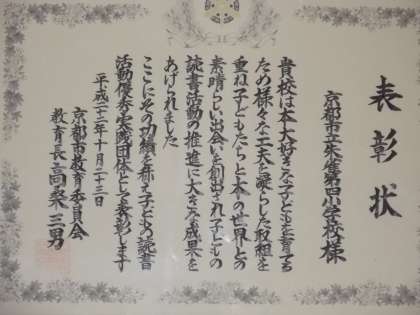 表彰状
京都市立朱雀第四小学校様
貴校は本大好きな子どもを育てる
ため様々な工夫を凝らした取組を
重ね子どもたちと本の世界との
素晴らしい出会いを創出され子どもの
読書活動の推進に大きな成果を
あげられました
ここにその功績を称え子どもの読書
活動優秀実践団体として表彰します
平成二十二年十月二十三日
京都市教育委員会
教育長高桑三男